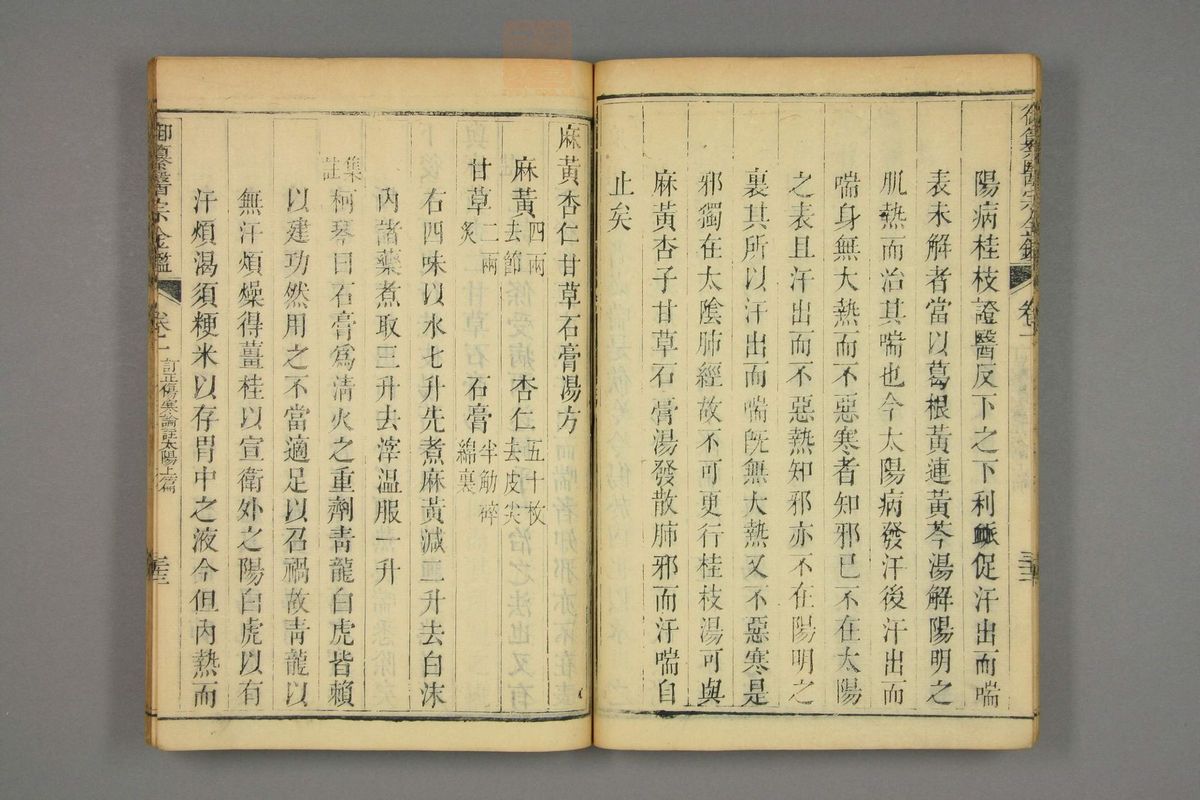 陽病桂枝證醫反下之下利脈促汗出而喘
表未解者當以葛根黃連黃芩湯解陽明之
肌熱而治其喘也今太陽病發汗後汗出而
喘身無大熱而不惡寒者知邪已不在太陽
之表且汗出而不惡熱知邪亦不在陽明之
裏其所以汗出而喘旣無大熱又不惡寒是
邪獨在太陰肺經故不可更行桂枝湯可與
麻黃杏子甘草石膏湯發散肺邪而汗喘自
止矣
麻黃杏仁甘草石膏湯方
麻黃四兩去節 杏仁五十枚去皮尖
甘草二兩炙 石膏半觔碎綿裹
右四味以水七升先煮麻黃減二升去白沫
內諸藥煮取三升去滓温服一升
集註柯琴曰石膏爲清火之重劑青龍白虎皆賴
以建功然用之不當適足以召禍故青龍以
無汗煩燥得薑桂以宣衛外之陽白虎以有
汗煩渴須粳米以存胃中之液今但內熱而
御纂醫宗金鑑 卷一 訂正傷寒論註太陽上篇